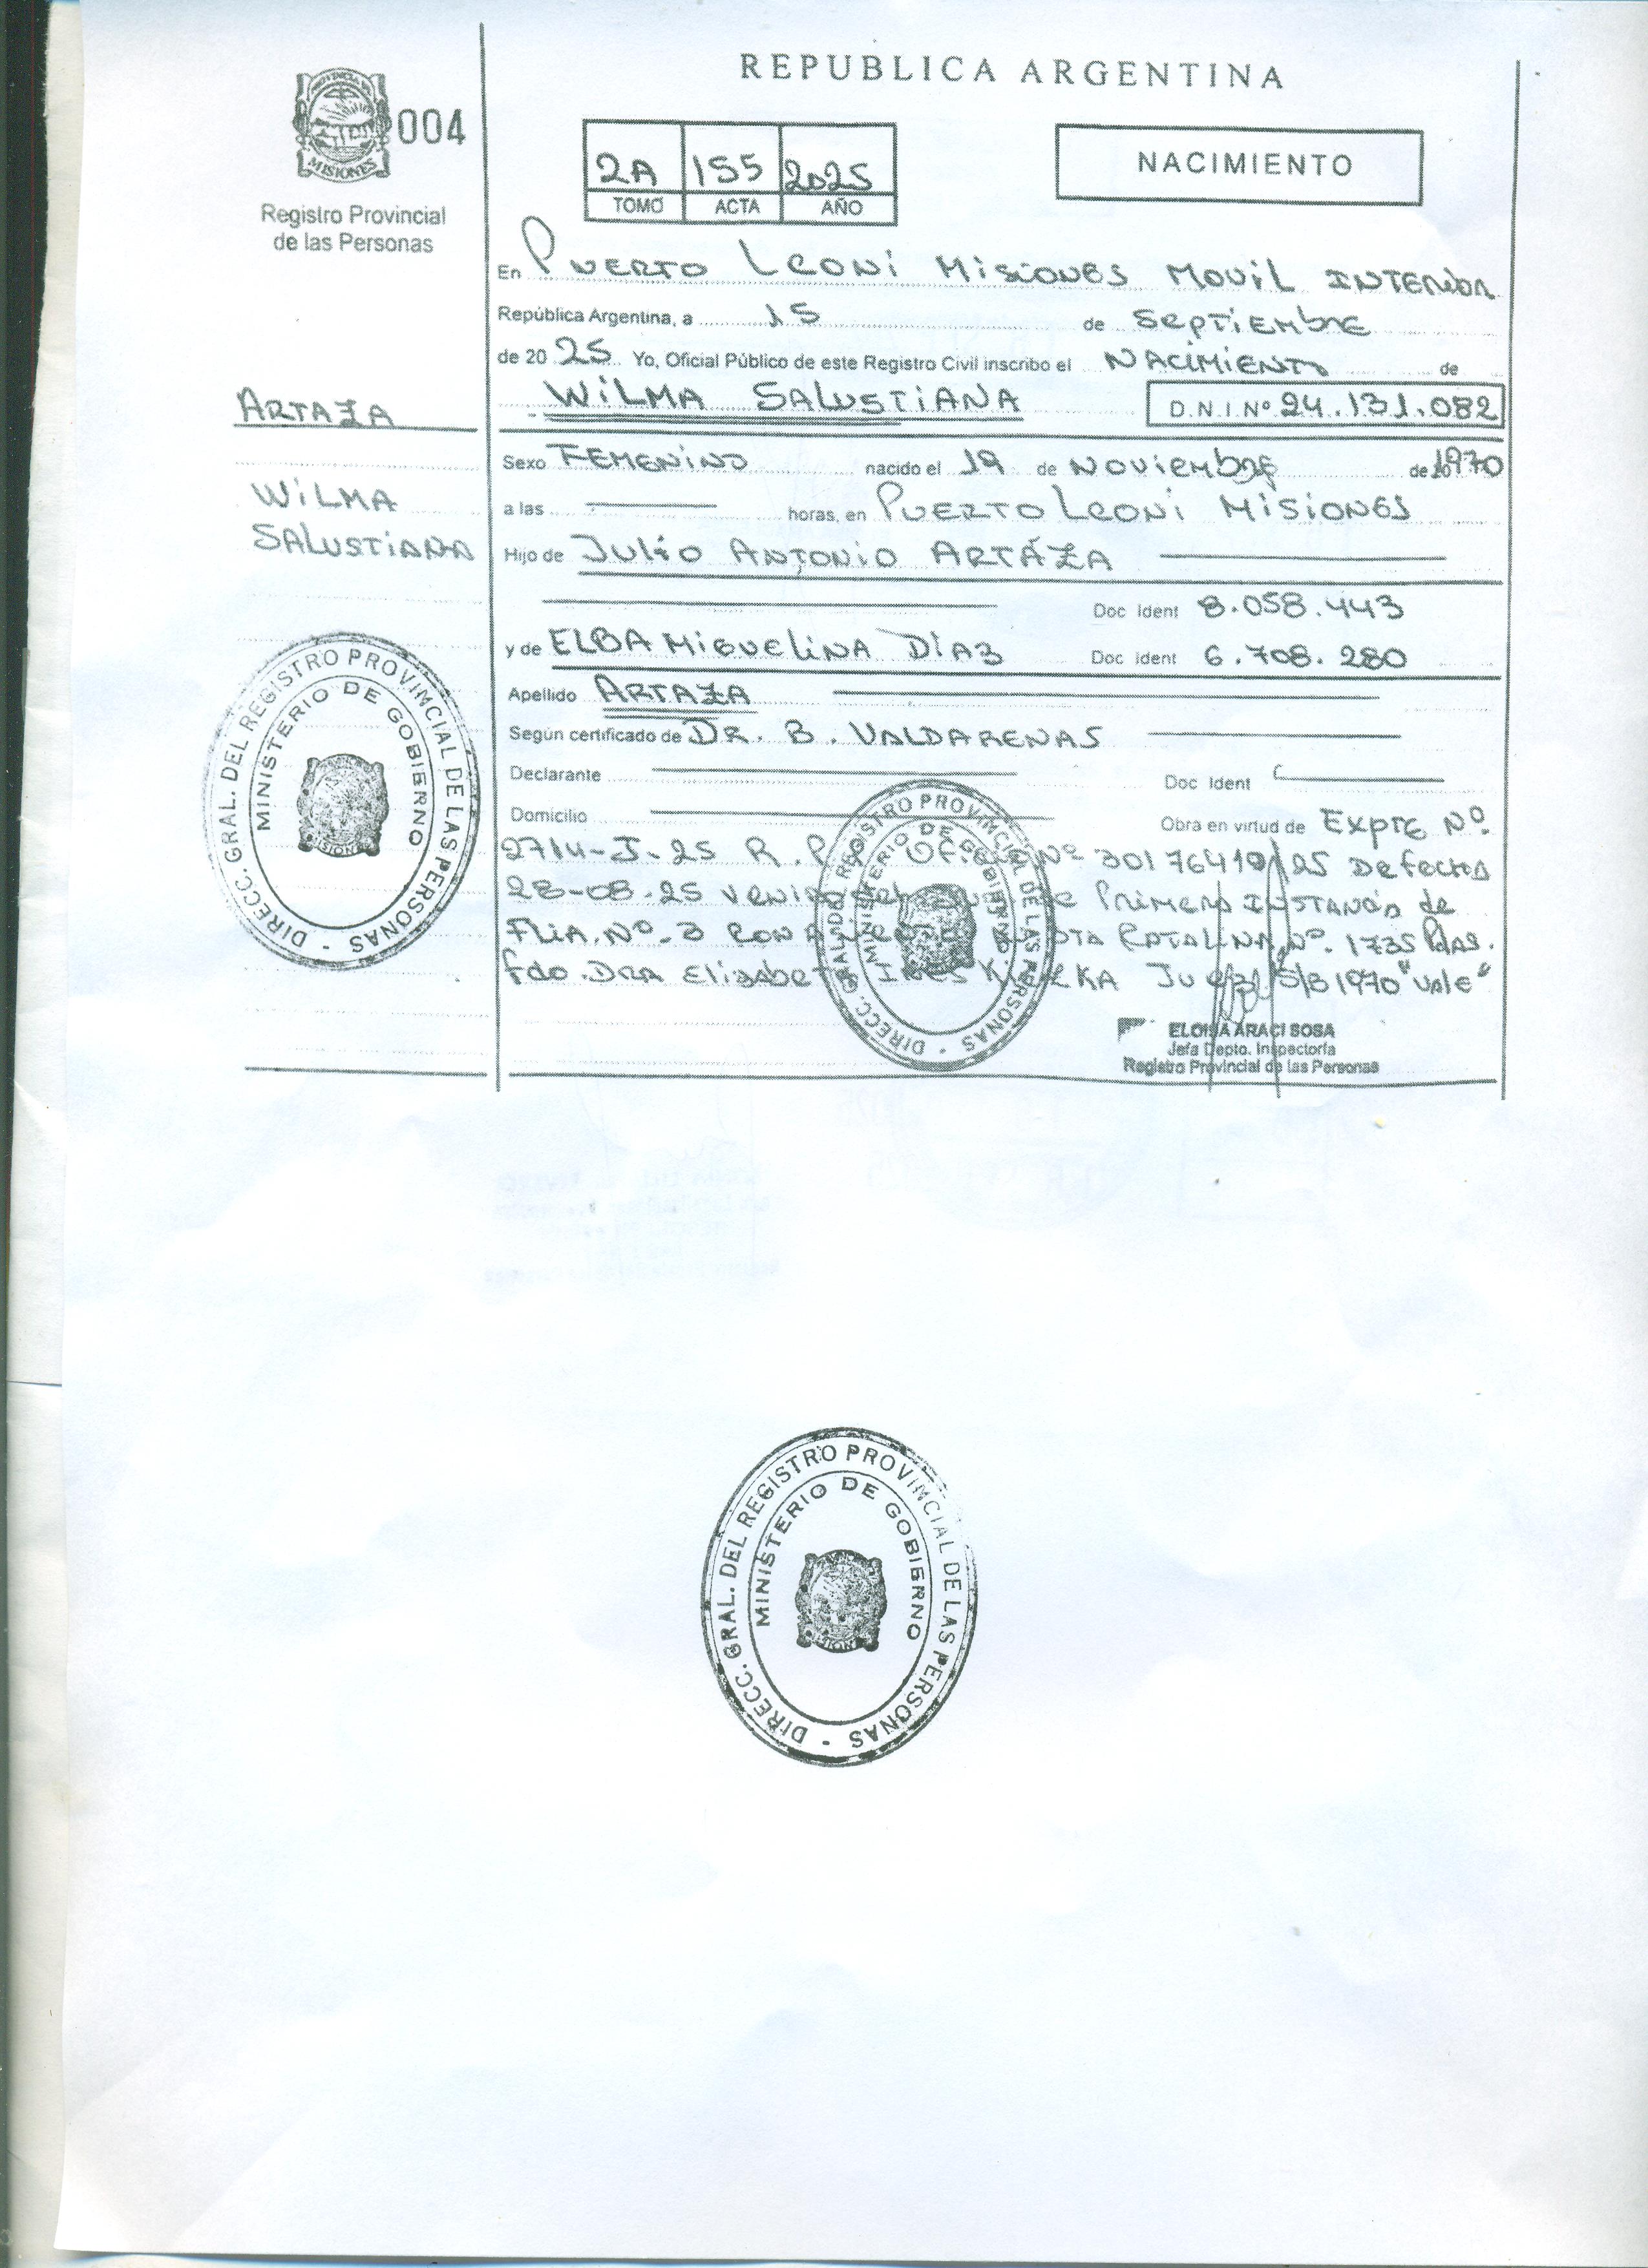 REPUBLICA ARGENTINA
MISIONES
004
Registro Provincial
de las Personas
2A 155 2025
TOMO ACTA AÑO
NACIMIENTO
En Puerto Leoni Misiones Movil Interior
República Argentina, a 15 de Septiembre
de 20 25 Yo, Oficial Público de este Registro Civil inscribo el Nacimiento de
Wilma Salustiana D.N.I Nº 24.131.082
Artaza
Wilma
Salustiana
Sexo Femenino nacido el 19 de Noviembre de 1970
a las horas, en Puerto Leoni Misiones
Hijo de Julio Antonio Artaza
Doc Ident 8.058.443
y de Elba Miguelina Díaz Doc Ident 6.708.280
Apellido Artaza
Según certificado de Dr. B. Valdarenas
Declarante Doc Ident
Domicilio Obra en virtud de Expte Nº
2714-J-25 R.P. Nº 30176410/25 De fecha
28-08-25 Primera Instancia de
Flia. Nº 3 con Catalina Nº 1735 Pdas.
fdo. Dra S/B 1970 "Vale"
ELOISA ARACI SOSA
Jefa Depto. Inspectoría
Registro Provincial de las Personas
DIRECC. GRAL. DEL REGISTRO PROVINCIAL DE LAS PERSONAS
MINISTERIO DE GOBIERNO
MISIONES
DIRECC. GRAL. DEL REGISTRO PROVINCIAL DE LAS PERSONAS
MINISTERIO DE GOBIERNO
DIRECC. GRAL. DEL REGISTRO PROVINCIAL DE LAS PERSONAS
MINISTERIO DE GOBIERNO